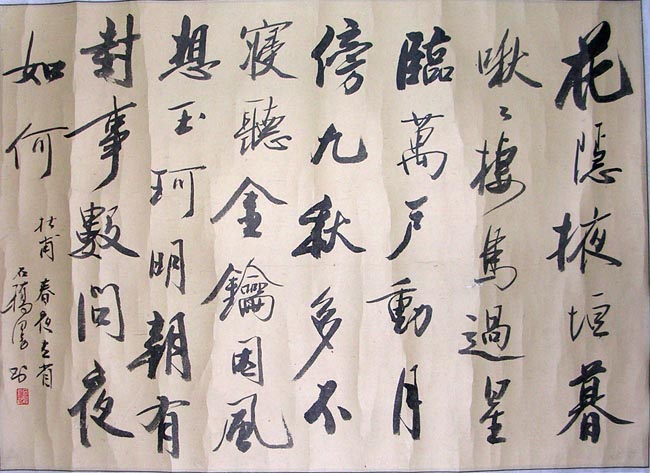 花隱掖垣暮
啾々棲鳥過星
臨萬戶動月
傍九秋多不
寢聽金鑰因風
想玉珂明朝有
封事數問夜
如何
杜甫 春夜左省
石橋